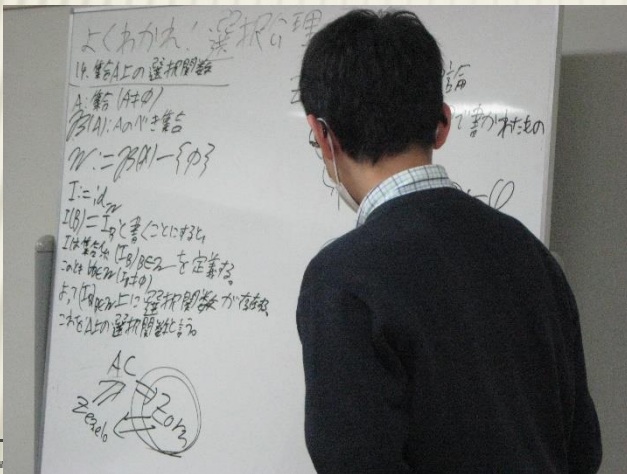 よくわかれ!選択公理
14. 集合A上の選択関数
A: 集合 (A≠φ)
𝒫(A): Aのべき集合
𝒩 := 𝒫(A) − {φ}
I := id_𝒩
I(B) = I_B と書くことにすると,
Iは集合族 (I_B)_{B∈𝒩} を定義する.
このとき ∀B∈𝒩 (I_B≠φ)
よって (I_B)_{B∈𝒩} 上に選択関数が存在.
これをA上の選択関数と言う.
AC
Zermelo
Zorn
論
で書かれたもの
=φ